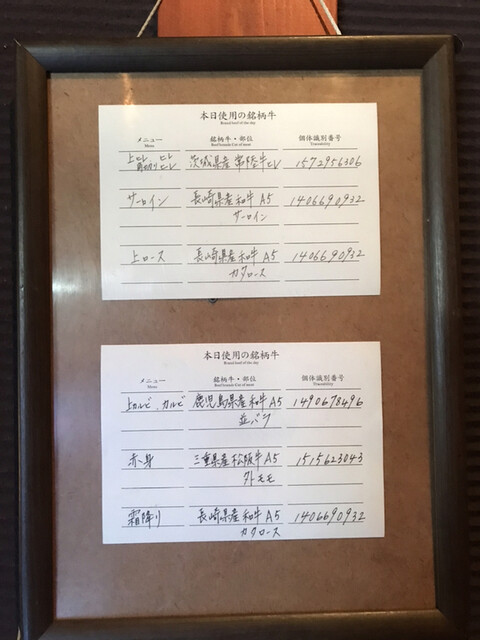 本日使用の銘柄牛
Brand beef of the day
メニュー 銘柄牛・部位 個体識別番号
Menu Beef brands Cut of meat Traceability
上ヒレ ヒレ
角切りヒレ 茨城県産 常陸牛ヒレ 1572956306
サーロイン 長崎県産和牛 A5 1406690932
サーロイン
上ロース 長崎県産和牛 A5 1406690932
カタロース
本日使用の銘柄牛
Brand beef of the day
メニュー 銘柄牛・部位 個体識別番号
Menu Beef brands Cut of meat Traceability
上カルビ、カルビ 鹿児島県産和牛A5 1490678496
並バラ
赤身 三重県産松阪牛A5 1515623043
外モモ
霜降り 長崎県産和牛A5 1406690932
カタロース